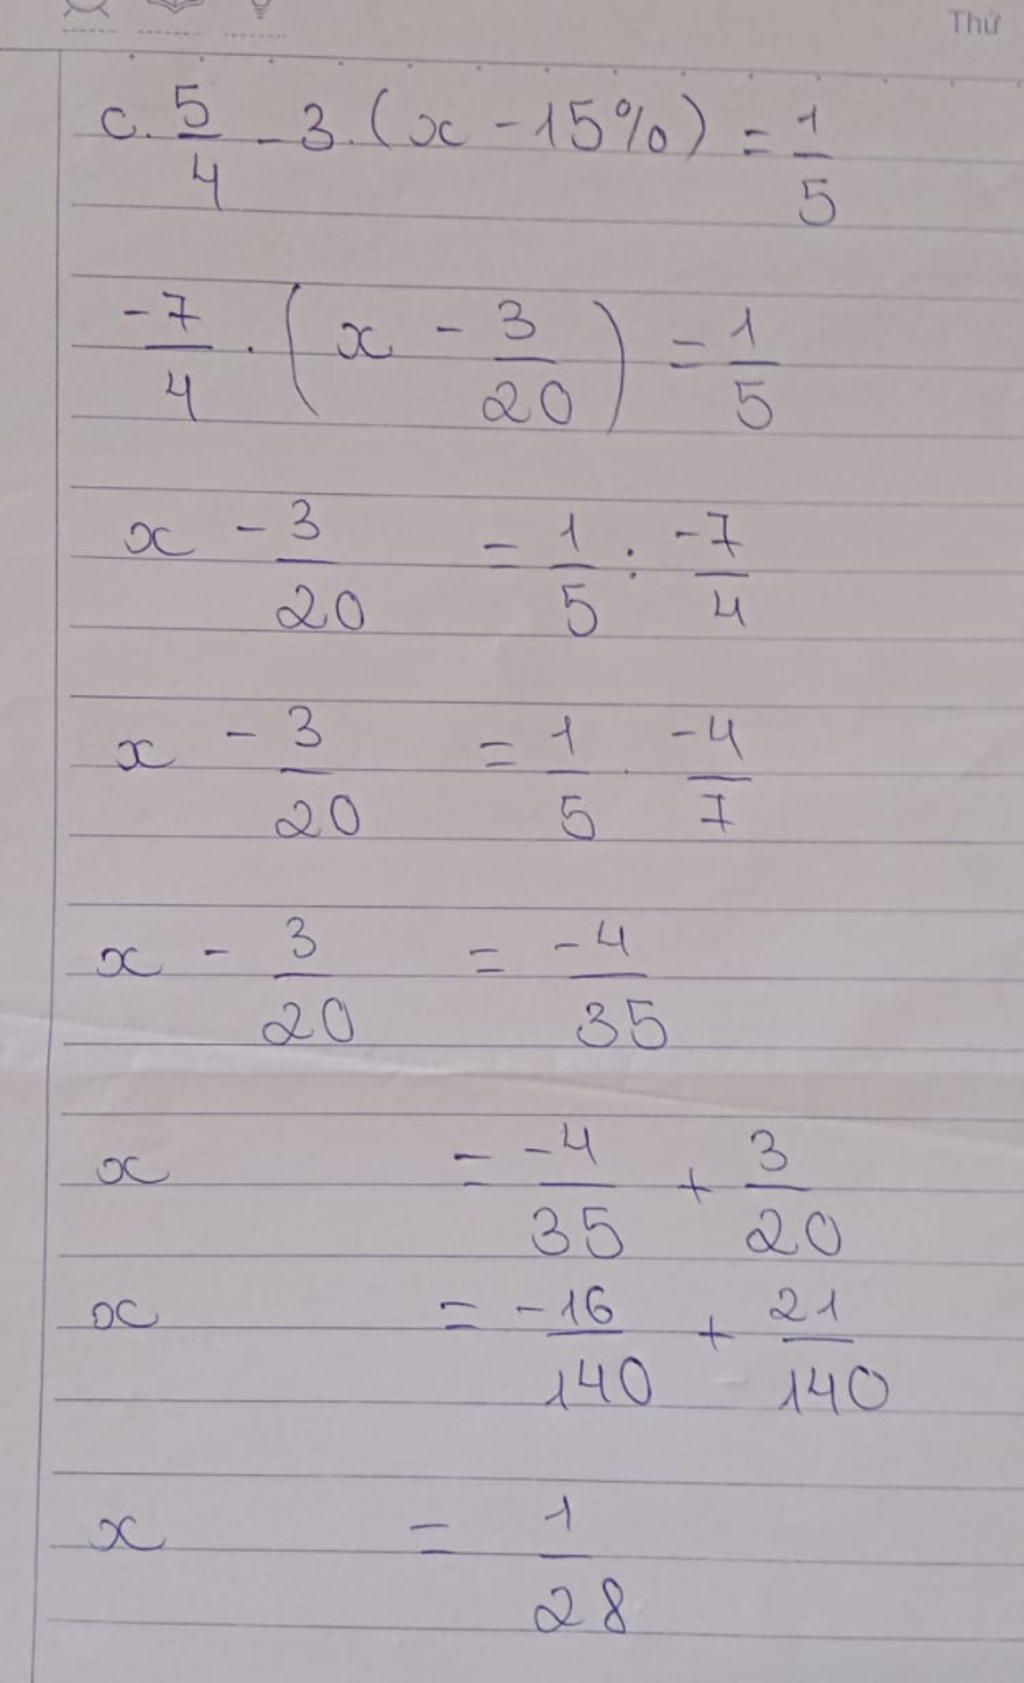 Thứ
c. 5/4 - 3.(x - 15%) = 1/5
-7/4 . (x - 3/20) = 1/5
x - 3/20 = 1/5 : -7/4
x - 3/20 = 1/5 . -4/7
x - 3/20 = -4/35
x = -4/35 + 3/20
x = -16/140 + 21/140
x = 1/28